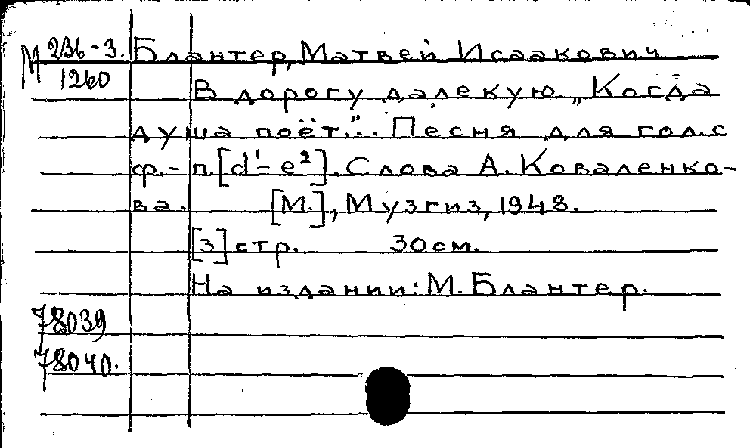 М 236-3. Блантер, Матвей Исаакович
1260
В дорогу далекую. „Когда
душа поёт.."... Песня для гол. с
ф.-п. [d¹-e²]. Слова А. Коваленко-
ва. [М.], Музгиз, 1948.
[3] стр. 30 см.
На издании: М. Блантер.
78039
78040.